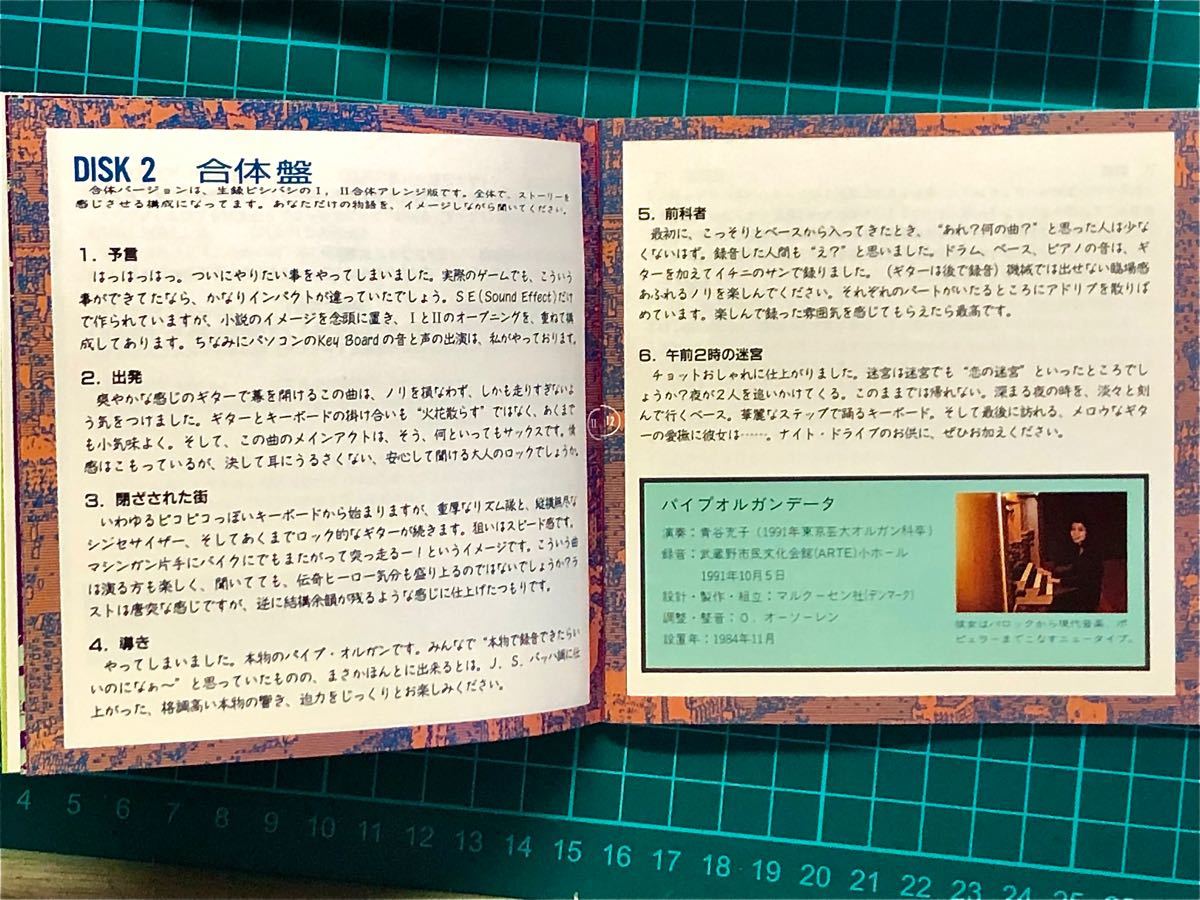 DISK 2 合体盤
合体バージョンは、生録ビシバシのⅠ，Ⅱ合体アレンジ版です。全体で、ストーリーを
感じさせる構成になってます。あなただけの物語を、イメージしながら聞いてください。
1．予言
はっはっはっ。ついにやりたい事をやってしまいました。実際のゲームでも、こういう
事ができてたなら、かなりインパクトが違っていたでしょう。SE(Sound Effect)だけ
で作られていますが、小説のイメージを念頭に置き、ⅠとⅡのオープニングを、重ねて構
成してあります。ちなみにパソコンのKey Boardの音と声の出演は、私がやっております。
2．出発
爽やかな感じのギターで幕を開けるこの曲は、ノリを損なわず、しかも走りすぎないよ
う気をつけました。ギターとキーボードの掛け合いも“火花散らす”ではなく、あくまで
も小気味よく。そして、この曲のメインアクトは、そう、何といってもサックスです。情
感はこもっているが、決して耳にうるさくない、安心して聞ける大人のロックでしょうか。
3．閉ざされた街
いわゆるピコピコっぽいキーボードから始まりますが、重厚なリズム隊と、縦横無尽な
シンセサイザー、そしてあくまでロック的なギターが続きます。狙いはスピード感です。
マシンガン片手にバイクにでもまたがって突っ走るー！というイメージです。こういう曲
は演る方も楽しく、聞いてても、伝奇ヒーロー気分も盛り上るのではないでしょうか？ラ
ストは唐突な感じですが、逆に結構余韻が残るような感じに仕上げたつもりです。
4．導き
やってしまいました。本物のパイプ・オルガンです。みんなで“本物で録音できたらい
いのになぁ〜”と思っていたものの、まさかほんとに出来るとは。J．S．バッハ調に仕
上がった、格調高い本物の響き、迫力をじっくりとお楽しみください。
11
12
5．前科者
最初に、こっそりとベースから入ってきたとき、“あれ？何の曲？”と思った人は少な
くないはず。録音した人間も“え？”と思いました。ドラム、ベース、ピアノの音は、ギ
ターを加えてイチニのサンで録りました。（ギターは後で録音）機械では出せない臨場感
あふれるノリを楽しんでください。それぞれのパートがいたるところにアドリブを散りば
めています。楽しんで録った雰囲気を感じてもらえたら最高です。
6．午前2時の迷宮
チョットおしゃれに仕上がりました。迷宮は迷宮でも“恋の迷宮”といったところでし
ょうか？夜が2人を追いかけてくる。このままでは帰れない。深まる夜の時を、淡々と刻
んで行くベース。華麗なステップで踊るキーボード。そして最後に訪れる、メロウなギタ
ーの愛撫に彼女は……。ナイト・ドライブのお供に、ぜひお加えください。
パイプオルガンデータ
演奏：青谷充子（1991年東京芸大オルガン科卒）
録音：武蔵野市民文化会館(ARTE)小ホール
1991年10月5日
設計・製作・組立：マルクーセン社(デンマーク)
調整・整音：O．オーソーレン
設置年：1984年11月
彼女はバロックから現代音楽、ポ
ピュラーまでこなすニュータイプ。
4 5 6 7 8 9 10 11 12 13 14 15 16 17 18 19 20 21 22 23 24